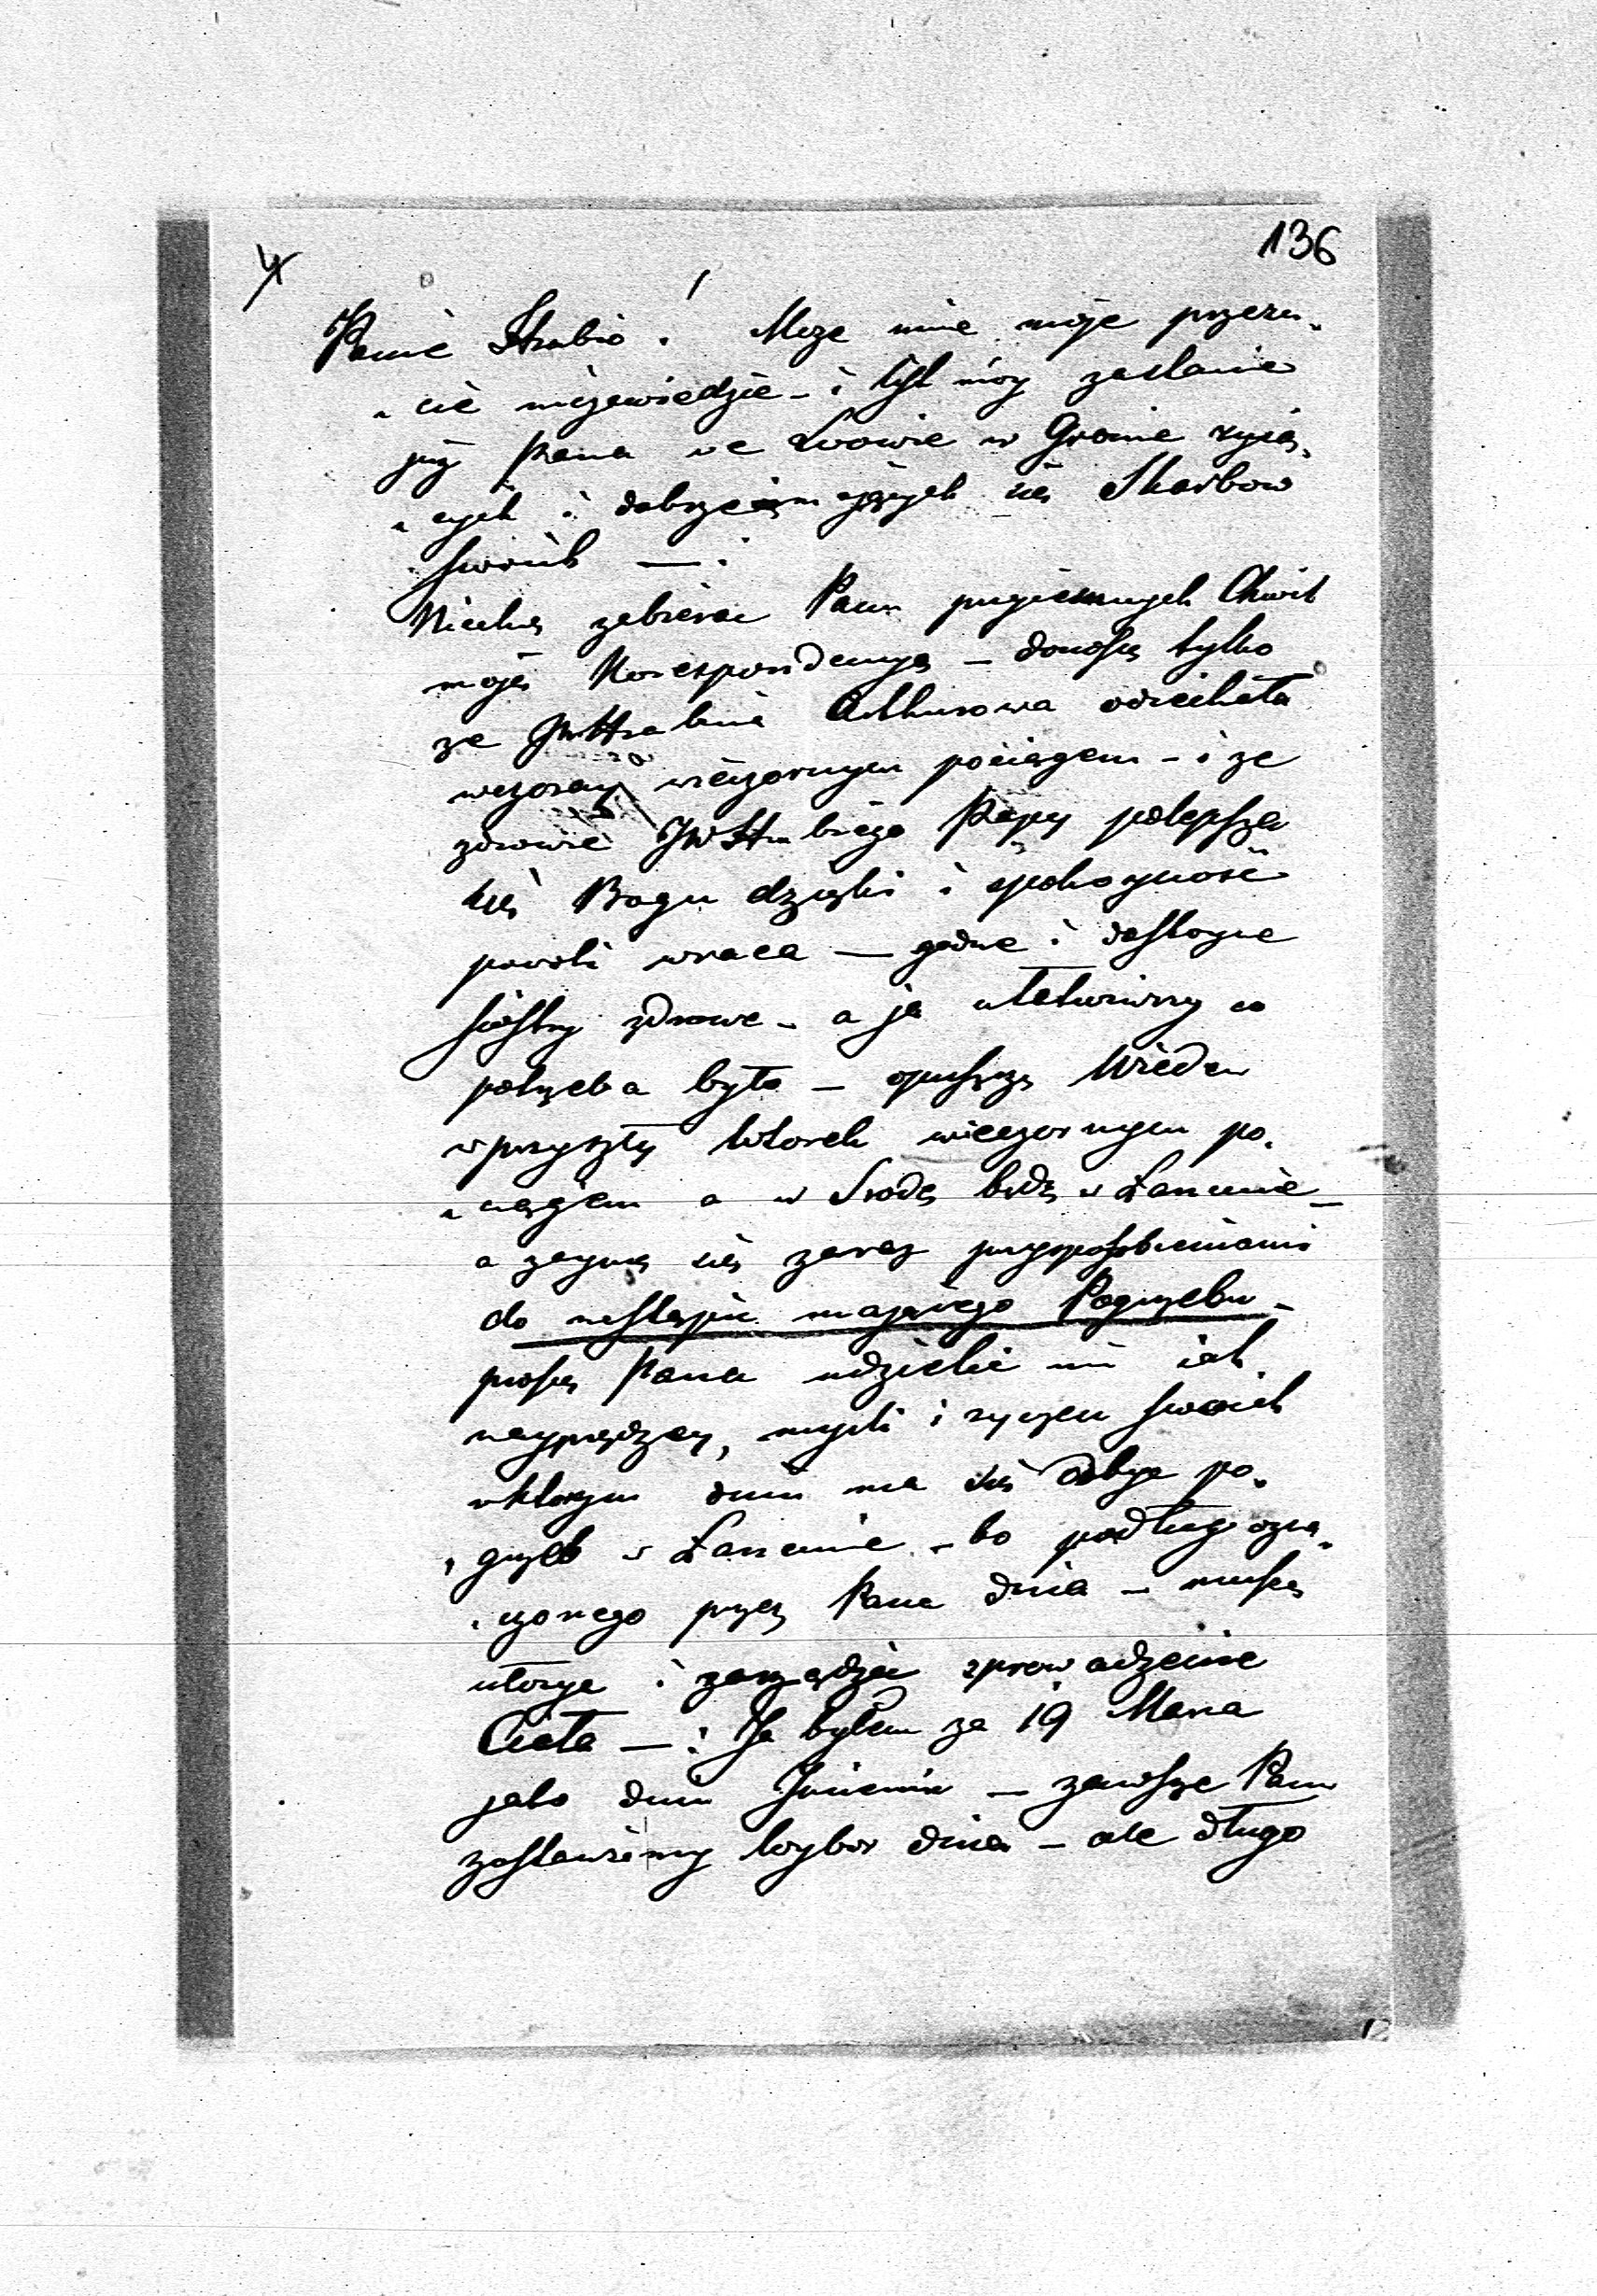 136
Panie Hrabio! Może mnie moje przezu„
„cie niezawiedzie – i list móy zastanie
już Pana we Lwowie w Gronie żyią„
„cych i dobrze mających się Skarbow
swoich —.
Niechcę zabierac Panu przyiemnych Chwil
moją Korespondencyą – donoszę tylko
ze JWHrabina Arthurowa odiechała
wczoray wieczornym pociągem – i ze
zdrowie JWHrabiego Papy polepsza
się Bogu dzięki i spokoyność
powoli wraca — godne i dostoyne
siostry zdrowe – a ja ułatwiwszy co
potrzeba było – opuszczę Wieden
w przyszły Wtorek wieczornym po„
„ciągiem a w Srodę będę w Łancucie –
a zaymę się zaraz przysposobieniami
do nastąpic mającego Pogrzebu –
proszę Pana udzielic mi iak
nayprędzey, mysli i zyczen swoich
w ktorym dniu ma się odbyc po„
„grzeb w Łancucie – bo podług ozna„
„czonego przez Pana dnia – muszę
ułozyc i zarządzic sprowadzenie
Ciała —: Ja byłem za 19 Marca
jako dniu Imienin — zawsze Panu
zostawiemy wybor dnia – ale długo
12